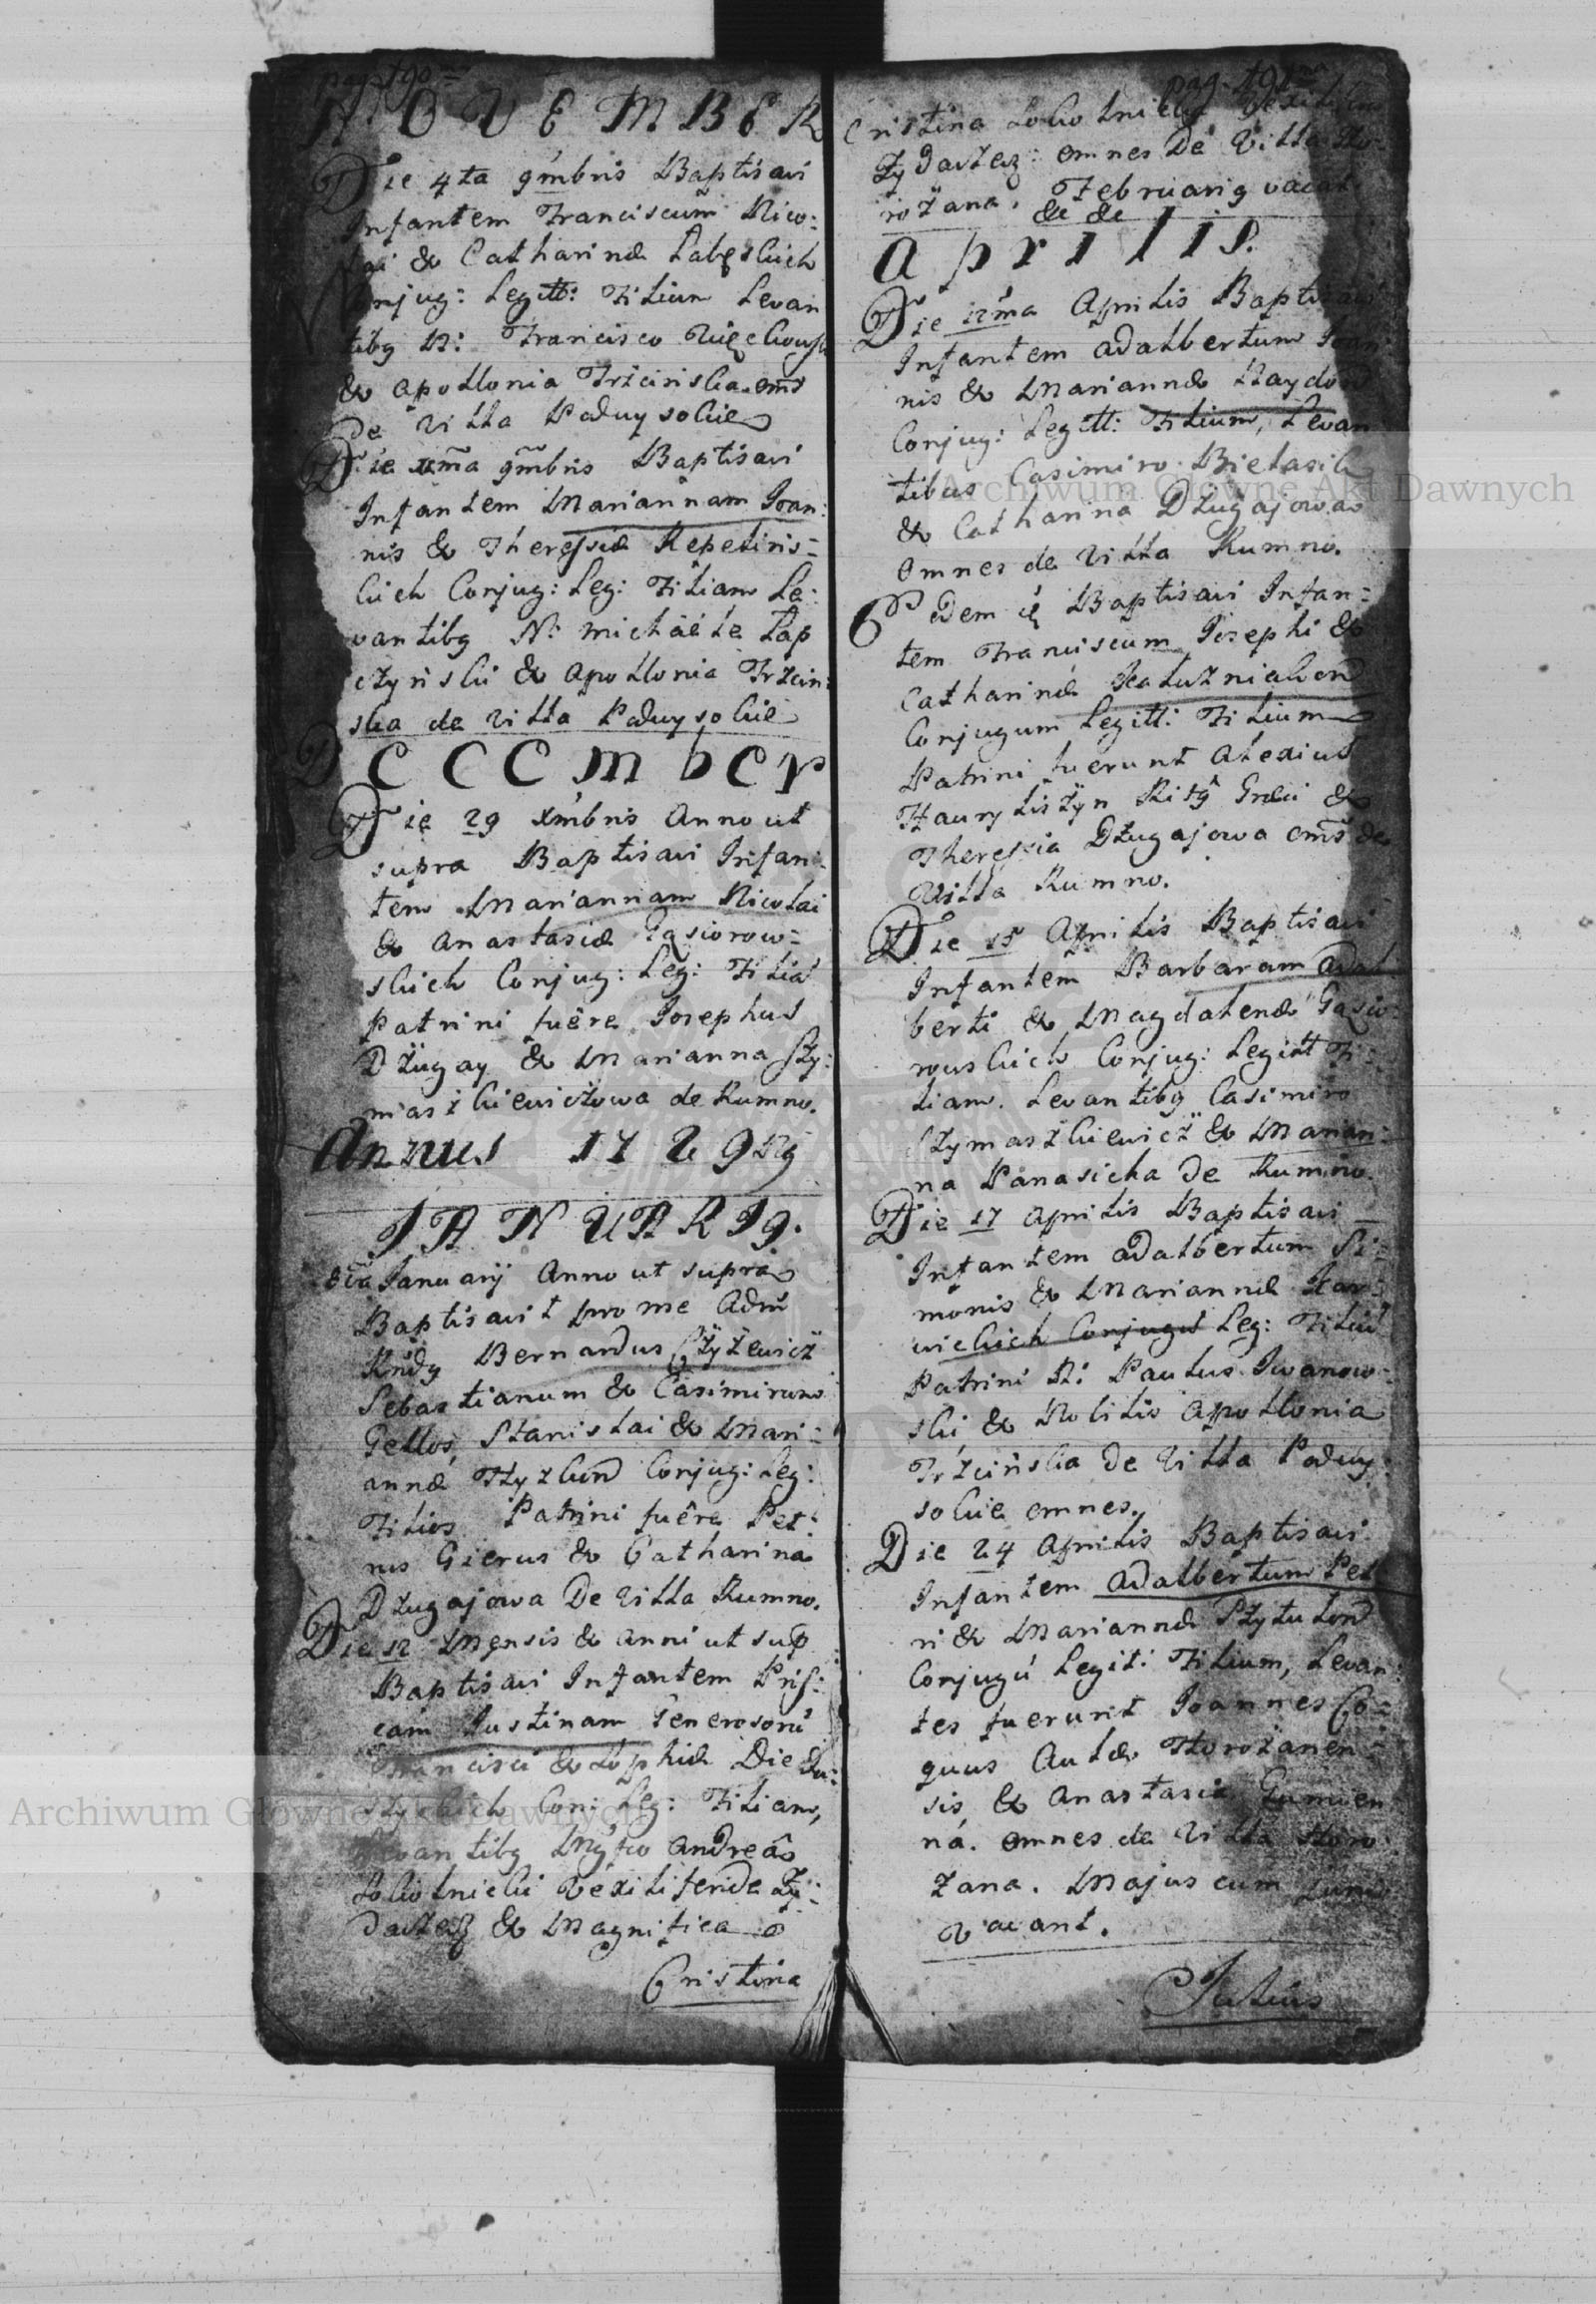 pag. 190
NOVEMBER
Die 4ta 9mbris Baptisavi
Infantem Franciscum Nico:
lai & Catharinæ Labęskich
Conjug: Legitt: Filium Levan
tibg N: Francisco
& Apollonia Trzcinska oms
De Villa Podwysokie
Die 9mbris Baptisavi
Infantem Mariannam Joan:
nis & Theressiæ Repelins=
kich Conjug: Leg: Filiam Le:
vantibg N: Michaele Łap
czynski & Apollonia Trzcin:
ska de Villa Podwysokie
December
Die 29 Xmbris Anno ut
supra Baptisavi Infan:
tem Mariannam Nicolai
& Anastasiæ Gąsiorow=
skich Conjug: Leg: Filia
Patrini fuêre Josephus
Dżugay & Marianna Szy:
maszkiewiczowa de Rumno.
Annus 1729ng
JANUARIg.
Januarij Anno ut supra
Baptisavit pro me Adm
Rndg Bernardus Czyżewicz
Sebastianum & Casimirum
Gellos, Stanislai & Mari=
annæ Conjug: Leg:
Filios Patrini fuêre Pet:
rus Gierus & Catharina
Dzugajowa De Villa Rumno.
Die 12 Mensis & Anni ut sup
Baptisavi Infantem Pris:
cam Justinam Generosorû
Francisci & Sophiæ Diedu:
szyckich Con: Leg: Filiam,
Levantibg Mgfco Andreâ
Sokolnicki Vexiliferide Zy=
daczeg & Magnifica
Cristina
pag. 191
Cristina Sokolnicka
Zydaczeg: omnes De Villa Ho:
rożana. Februarig vacat
&c &c
Aprilis.
Die 12ma Aprilis Baptisavi
Infantem Adalbertum Joan
nis & Mariannæ Haydow
Conjug: Legitt: Filium, Levan
tibus Casimiro Bielasik
& Catharina Dzugajowa
Omnes de Villa Rumno.
Edem Baptisavi Infan=
tem Franciscum Josephi &
Catharinæ
Conjugum Legitt: Filium
Patrini fuerunt Alexius
Hauryliszyn Ritg Græci &
Theressia Dzugajowa oms de
Villa Rumno.
Die 15 Aprilis Baptisavi
Infantem Barbaram Adal
berti & Magdalenæ Gąsio:
rowskich Conjug: Legitt Fi:
liam. Levantibg Casimiro
Szymaszkiewicz & Marian:
na Panasicha De Rumno.
Die 17 Aprilis Baptisavi
Infantem Adalbertum Si=
monis & Mariannæ
Leg: Filiu
Patrini N: Paulus Iwanow:
ski & Nobilis Apollonia
Trzcinska De Villa Podwy:
sokie omnes.
Die 24 Aprilis Baptisavi
Infantem Adalbertum Pet
ri & Mariannæ
Conjugû Legit: Filium, Levan:
tes fuerunt Joannes Co=
quus Aulæ Horożanen=
sis & Anastasia Gumien
na. omnes de Villa Horo
żana. Majus cum Junio
vacant.
Julius
Archiwum Główne Akt Dawnych
Archiwum Główne Akt Dawnych